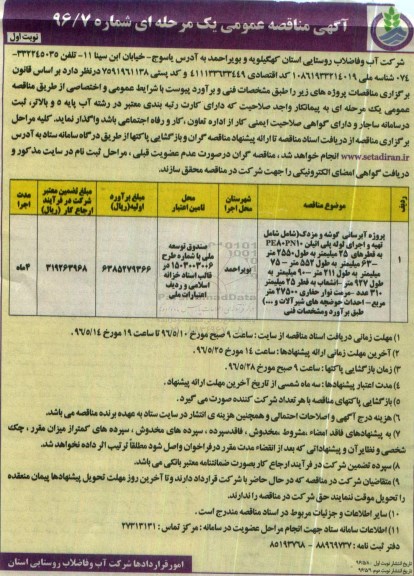 آگهی مناقصه عمومی یک مرحله ای شماره ۹۶/۷
نوبت اول
شرکت آب وفاضلاب روستایی استان کهگیلویه و بویراحمد به آدرس یاسوج- خیابان ابن سینا ۱۱- تلفن ۳۳۲۲۴۵۰۳۵-
۰۷۴ شناسه ملی ۱۰۸۶۱۹۳۳۲۱۴۰۱۹ کد اقتصادی ۴۱۱۱۳۳۶۳۴۴۹ و کد پستی ۷۵۹۱۹۶۱۱۳۸ درنظر دارد بر اساس قانون
برگزاری مناقصات پروژه های زیر را طبق مشخصات فنی و برآورد پیوست با شرایط عمومی و اختصاصی از طریق مناقصه
عمومی یک مرحله ای به پیمانکار واجد صلاحیت که دارای کارت رتبه بندی معتبر در رشته آب پایه ۵ و بالاتر، ثبت
درسامانه ساجار و دارای گواهی صلاحیت ایمنی کار از اداره تعاون ، کار و رفاه اجتماعی باشد واگذار نماید. کلیه مراحل
برگزاری مناقصه از دریافت اسناد مناقصه تا ارائه پیشنهاد مناقصه گران و بازگشایی پاکتها از طریق درگاه سامانه ستاد به آدرس
www.setadiran.ir انجام خواهد شد ، مناقصه گران درصورت عدم عضویت قبلی ، مراحل ثبت نام در سایت مذکور و
دریافت گواهی امضای الکترونیکی را جهت شرکت در مناقصه محقق سازند.
ردیف
موضوع مناقصه
شهرستان محل اجرا
محل تامین اعتبار
مبلغ برآورد اولیه(ریال)
مبلغ تضمین معتبر شرکت در فرآیند ارجاع کار (ریال)
مدت اجرا
۱
پروژه آبرسانی گوشه و مزدک(شامل شامل
تهیه و اجرای لوله پلی اتیلن PE80PN10
به قطرهای ۲۵ میلیمتر به طول ۲۵۵۰ متر
-۶۳ میلیمتر به طول ۵۵۲ متر - ۷۵
میلیمتر به طول ۲۱۱ متر -۹۰ میلیمتر به
طول ۹۲۷ متر -انشعاب به قطر ۲۵ میلیمتر
۳۱۰ عدد -مرمت نوار حفاری ۲۷۵۰۰ متر
مربع- احداث حوضچه های شیرآلات و ...)
طبق برآورد ومشخصات فنی
بویراحمد
صندوق توسعه
ملی با شماره طرح
۱۵۰۳۰۰۳۰۰۶ در
قالب اسناد خزانه
اسلامی و ردیف
اعتبارات ملی
۶۳۸۵۲۷۹۳۶۶
۳۱۹۲۶۳۹۶۸
۴ماه
۱) مهلت زمانی دریافت اسناد مناقصه از سایت : ساعت ۹ صبح مورخ ۹۶/۵/۱۰ تا ساعت ۱۹ مورخ ۹۶/۵/۱۴
۲) آخرین مهلت زمانی ارائه پیشنهادها: ساعت ۱۴ مورخ ۹۶/۵/۲۵
۳) زمان بازگشایی پاکتها: ساعت ۹ صبح مورخ ۹۶/۵/۲۸
۴) مدت اعتبار پیشنهادها: سه ماه شمسی از تاریخ آخرین مهلت ارائه پیشنهاد.
۵) بازگشایی پاکتهای مناقصه با هر تعداد شرکت کننده صورت می گیرد.
۶) هزینه درج آگهی و اصلاحات احتمالی و همچنین هزینه ی انتشار در سایت ستاد به عهده برنده مناقصه می باشد.
۷) به پیشنهادهای فاقد امضاء ،مشروط ،مخدوش ، فاقد سپرده ، سپرده های مخدوش ، سپرده های کمتر از میزان مقرر ، چک
شخصی و نظایر آن و پیشنهاداتی که بعد از انقضاء مدت مقرر در فراخوان واصل شود مطلقاً ترتیب اثر داده نخواهد شد.
۸) سپرده تضمین شرکت در فرآیند ارجاع کار بصورت ضمانتنامه معتبر بانکی می باشد.
۹) متقاضیان شرکت در مناقصه که در حال حاضر با شرکت قرارداد دارند و تا آخرین روز مهلت تحویل پیشنهادها پیمان منعقده
را تحویل موقت ننمایند حق شرکت در مناقصه را ندارند.
۱۰) سایر اطلاعات و جزئیات مربوط در اسناد مناقصه مندرج است.
۱۱) اطلاعات سامانه ستاد جهت انجام مراحل عضویت در سامانه : مرکز تماس : ۲۷۳۱۳۱۳۱
دفتر ثبت نامه : ۸۸۹۶۹۷۳۷ - ۸۵۱۹۳۷۶۸
تاریخ انتشار نوبت اول : ۹۶/۵/۸
تاریخ انتشار نوبت دوم : ۹۶/۵/۹
امور قراردادها شرکت آب وفاضلاب روستایی استان